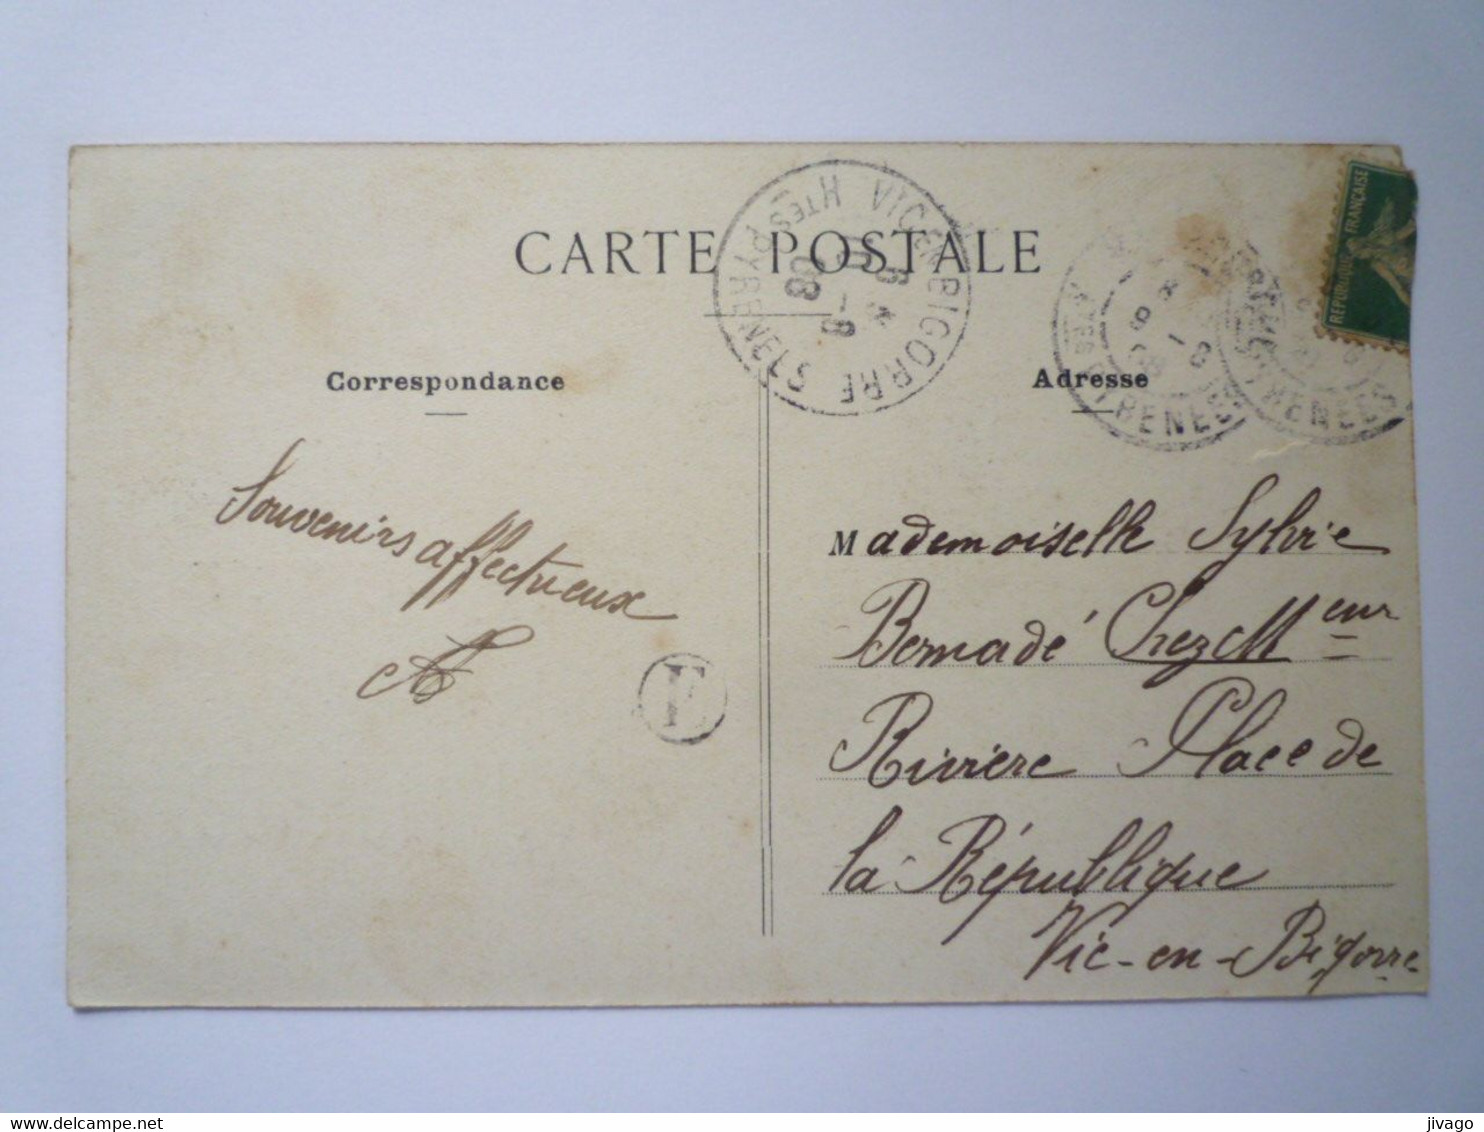 CARTE POSTALE
VIC-EN-BIGORRE
Htes PYRENEES
10
8-9
08
REPUBLIQUE FRANÇAISE
PYRENEES
PYRENEES
Correspondance
Adresse
Souvenirs affectueux
E
Mademoiselle Sylvie
Bernadé Chez Meur
Rivière Place de
la République
Vic-en-Bigorre
www.delcampe.net
jivago